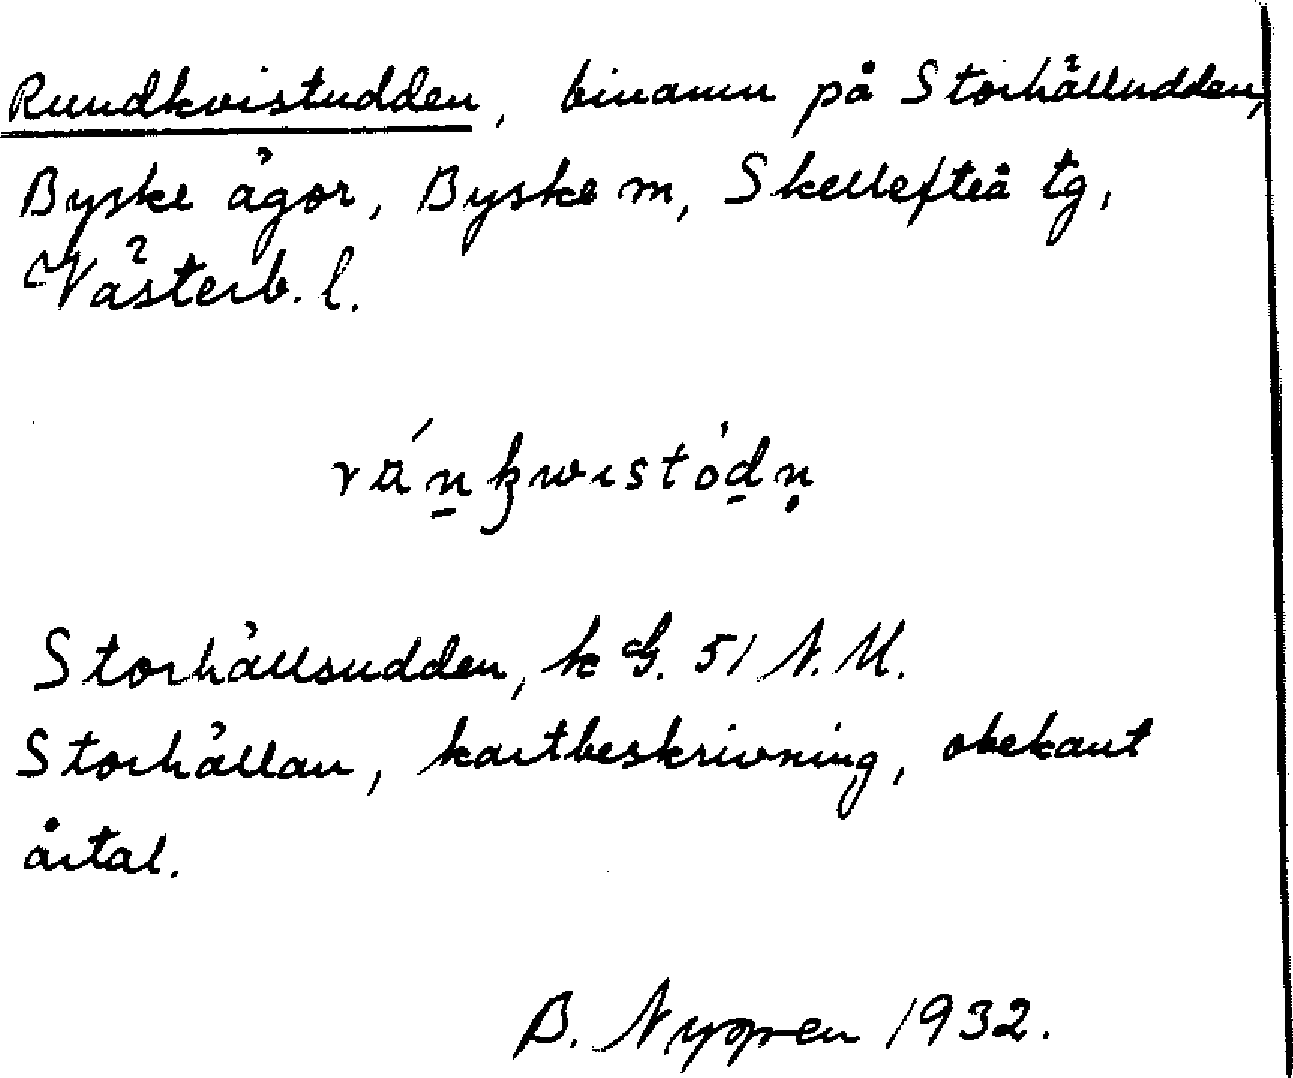 Rundkvistudden, binamn på Storhälludden,
Byske ägor, Byske m, Skellefteå tg,
Västerb. l.
Storhällsudden, k G. 51 N. M.
Storhällan, kartbeskrivning, obekant
årtal.
B. Nyppen 1932.